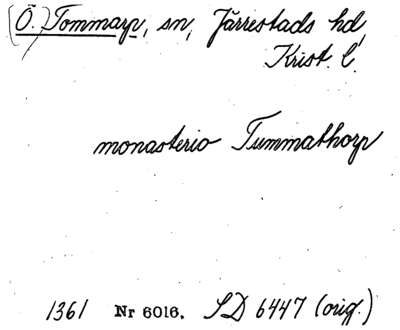 (Ö.) Tommarp, sn, Järrestads hd,
Krist. l.
monasterio Tummathorp
1361 Nr 6016. SD 6447 (orig.)